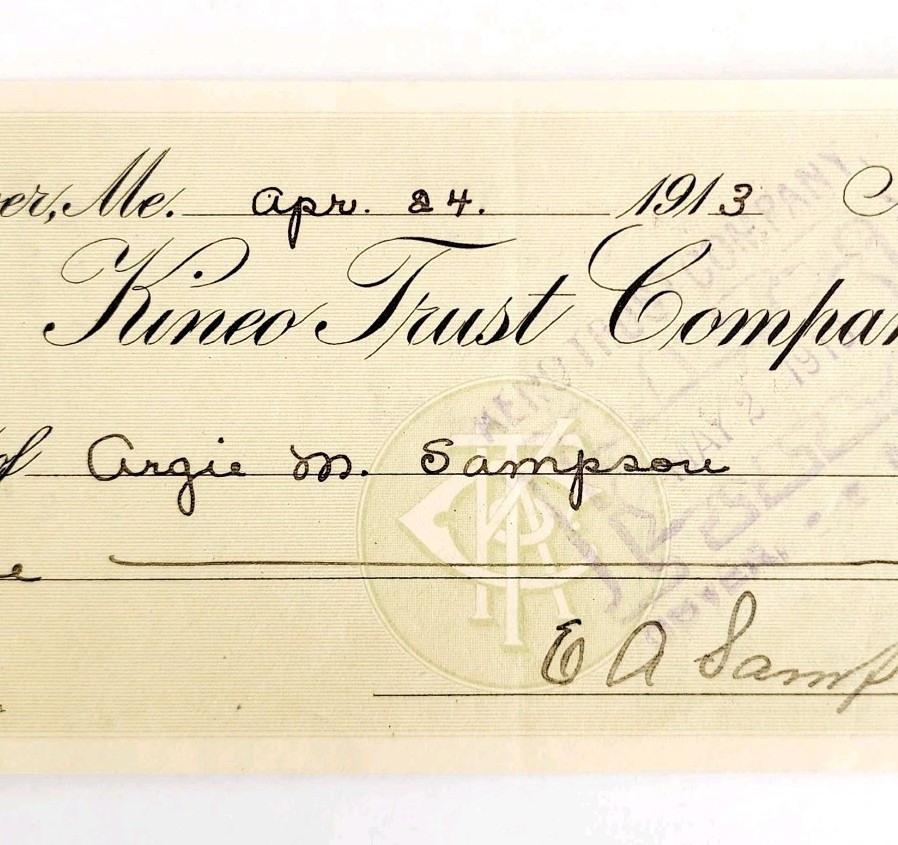 er, Me. Apr. 24. 1913
Kineo Trust Compan
of Argie M. Sampson
E A Samp
MERO TRUST COMPANY,
MAY 2 191
DOVER,